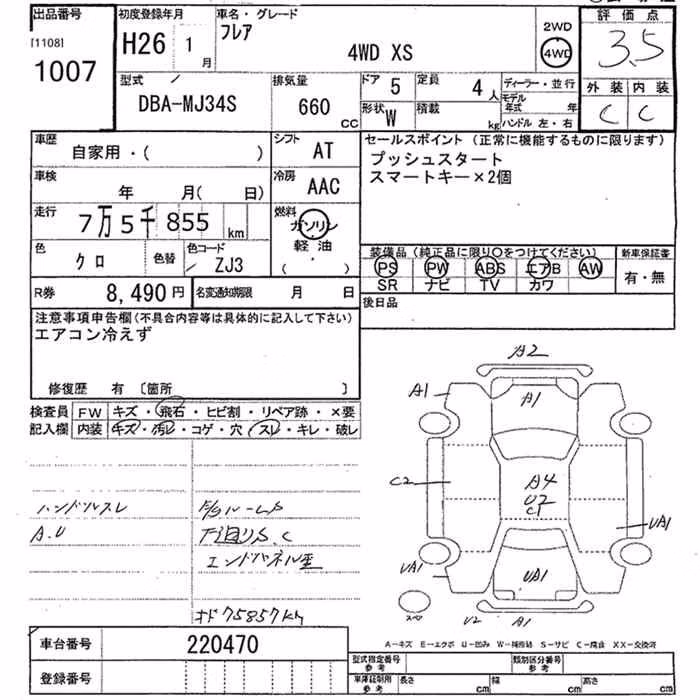 出品番号 初度登録年月 車名・グレード
[1108] 1007
H26 1月
フレア
4WD XS
2WD
4WD
評価点
3.5
外装 内装
C C
型式 排気量 ドア 5 定員 4人 ディーラー・並行
DBA-MJ34S 660 CC
形状 W 積載 kg
モデル年式 年
ハンドル 左・右
車歴 シフト AT
自家用・( )
セールスポイント (正常に機能するものに限ります)
プッシュスタート
スマートキー×2個
車検 年 月( 日) 冷房 AAC
走行 7万5千855km 燃料 ガソリン
軽油
( )
色 クロ 色替 色コード ZJ3
装備品(純正品に限り○をつけてください) 新車保証書
PS PW ABS エアB AW 有・無
SR ナビ TV カワ
R券 8,490円 名変通知期限 月 日
後日品
注意事項申告欄(不具合内容等は具体的に記入して下さい)
エアコン冷えず
修復歴 有 〔箇所 〕
検査員 FW キズ・飛石・ヒビ割・リペア跡・×要
記入欄 内装 キズ・汚レ・コゲ・穴・スレ・キレ・破レ
ハンドルスレ
A.U
下廻りS.C
エンドパネル歪
オド75857km
A2
A1 A1
C2 A4
U2
C1
UA1
UA1 UA1
スペ U2 A1
A-キズ E-エクボ U-凹み W-補修跡 S-サビ C-腐食 XX-交換済
車台番号 220470
登録番号
型式指定番号 参考 類別区分番号 参考
車庫証明用 参考 長さ cm 幅 cm 高さ cm